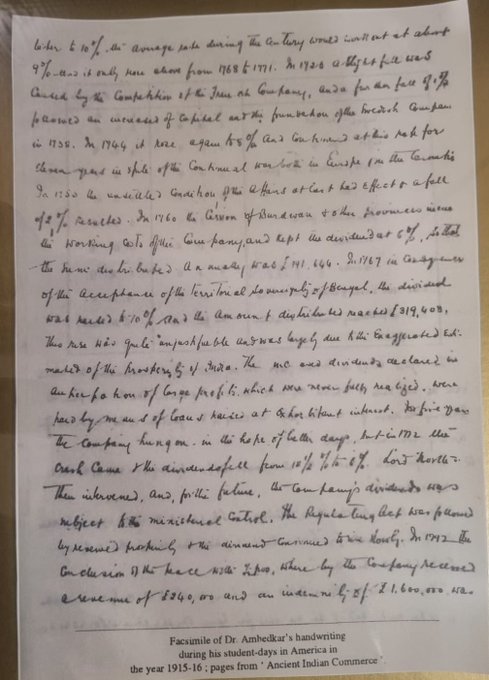 later to 10%, the average rate during the Century would work out at about
9% and it only rose above from 1768 to 1771. In 1723 a slight fall was
Caused by the Competition of the French Company, and a further fall of 1%
followed an increase of Capital and the foundation of the Swedish Company
in 1738. In 1744 it rose again to 8% and Continued at this rate for
eleven years in spite of the Continual war both in Europe & in the Carnatic
In 1755 the unsettled Condition of the Affairs at last had effect & a fall
of 2% resulted. In 1760 the Cession of Burdwan & other provinces
the working Costs of the Company and kept the dividend at 6%, so that
the sum distributed Annually was £191,644. In 1767 in Consequence
of the Acceptance of the territorial Sovereignty of Bengal, the dividend
was raised to 10% and the amount distributed reached £319,408.
This rise was quite unjustifiable and was largely due to the Exaggerated Esti-
mates of the prosperity of India. The dividends declared in
anticipation of large profits, which were never fully realized, were
paid by means of loans raised at exhorbitant interest. For five years
the Company hung on in the hope of better days, but in 1772 the
Crash Came & the dividends fell from 12½% to 6%. Lord North
then intervened, and, for the future, the Company's dividends was
subject to the ministerial Control. The Regulating Act was followed
by renewed prosperity & the dividend Continued to rise slowly. In 1792 the
Conclusion of the peace with Tipoo, where by the Company received
a revenue of £240,000 and an indemnity of £1,600,000 was
Facsimile of Dr. Ambedkar's handwriting
during his student-days in America in
the year 1915-16 ; pages from ' Ancient Indian Commerce '.